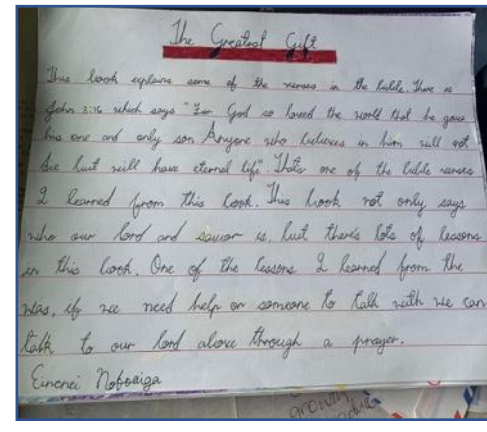 The Greatest Gift
This book explains some of the verses in the bible. There is
John 3:16 which says "For God so loved the world that he gave
his one and only son. Anyone who believes in him will not
die but will have eternal life". Thats one of the bible verses
I learned from this book. This book not only says
who our lord and savior is, but there's lots of lessons
in this book. One of the lessons I learned from the
was, if we need help or someone to talk with we can
talk to our lord above through a prayer.
growth